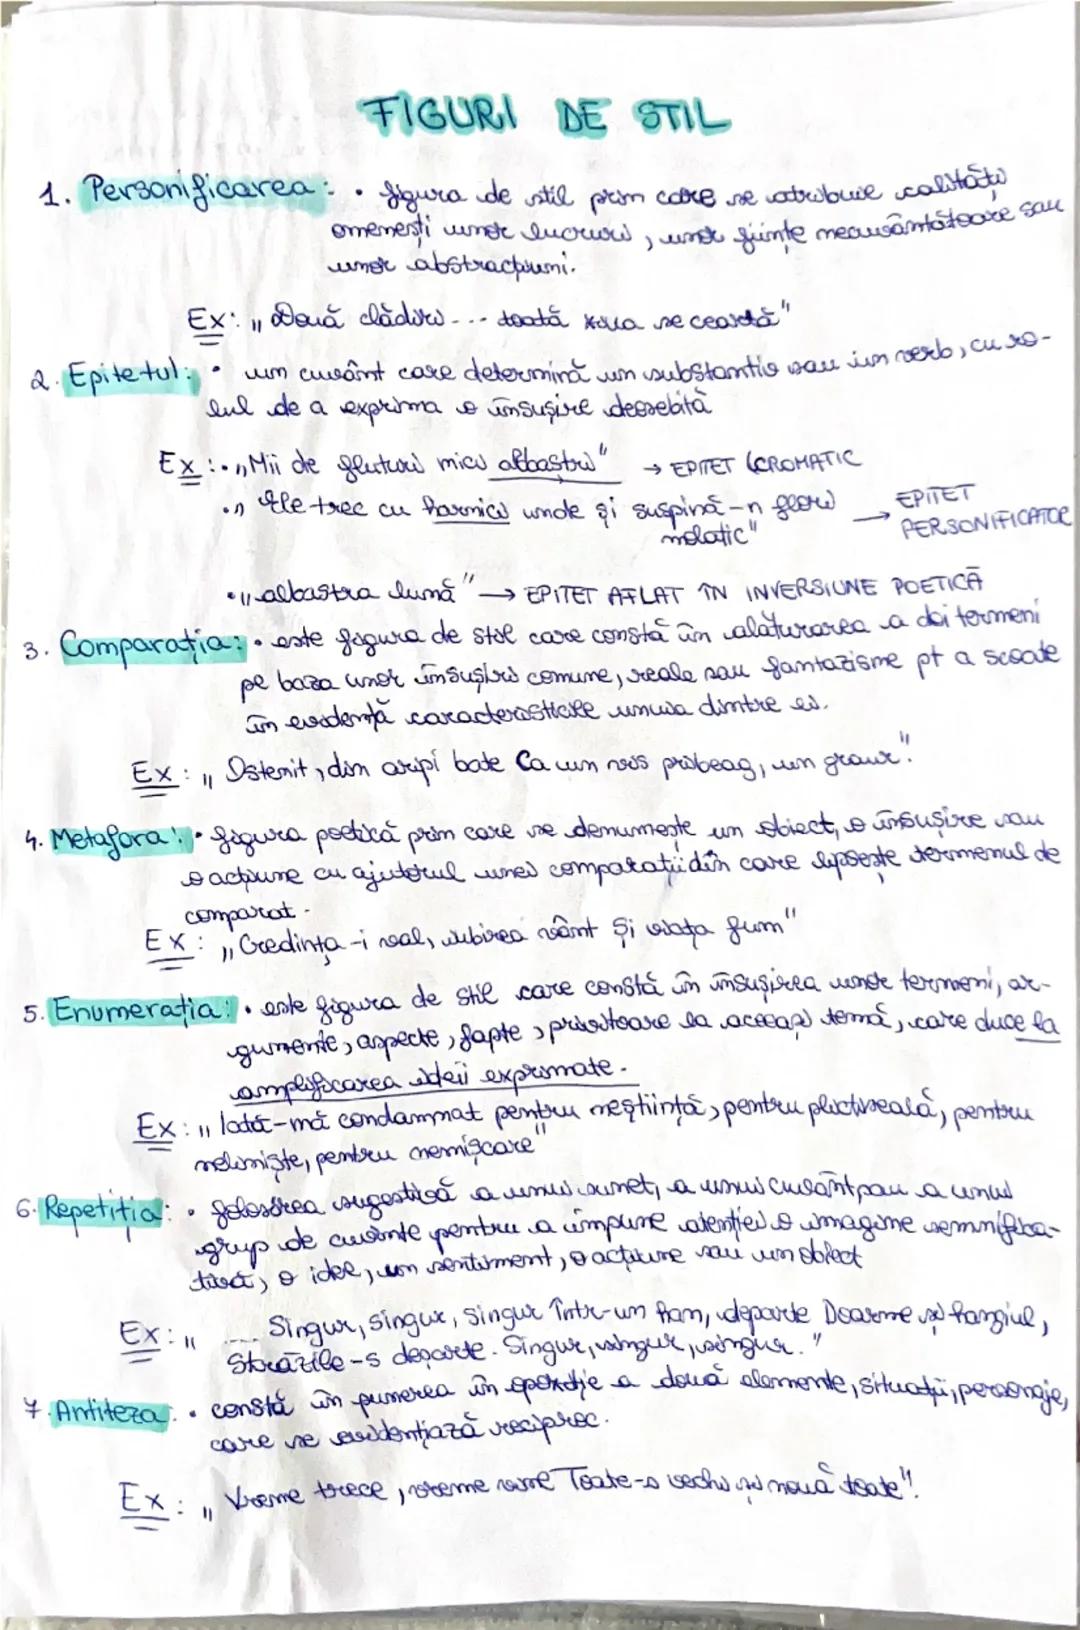 FIGURI DE STIL
1. Personificarea: • figura de stil prin care se atribuie calități
omenești unor lucruri, unor ființe necuvântătoare sau
unor abstracțiuni.
Ex: „Două clădiri... toată ziua se ceartă"
2. Epitetul: • un cuvânt care determină un substantiv sau un verb, cu ro-
lul de a exprima o însușire deosebită
Ex: • „Mii de fluturi mici albaștri" → EPITET CROMATIC
• „Ele trec cu harnici unde și suspină-n flori → EPITET
molatic" PERSONIFICATOR
• „albastra lună" → EPITET AFLAT ÎN INVERSIUNE POETICĂ
3. Comparația: • este figura de stil care constă în alăturarea a doi termeni
pe baza unor însușiri comune, reale sau fantazisme pt a scoate
în evidență caracteristicile unuia dintre ei.
Ex: „Ostenit, din aripi bate Ca un vis pribeag, un graur".
4. Metafora: • figura poetică prin care se denumește un obiect, o însușire sau
o acțiune cu ajutorul unei comparații din care lipsește termenul de
comparat.
Ex: „Credința-i val, iubirea vânt Și viața fum"
5. Enumerația: • este figura de stil care constă în însușirea unor termeni, ar-
gumente, aspecte, fapte, privitoare la aceeași temă, care duce la
amplificarea ideii exprimate.
Ex: „Iată-mă condamnat pentru neștiință, pentru plictiseală, pentru
neliniște, pentru nemișcare"
6. Repetiția: • folosirea sugestivă a unui sunet, a unui cuvânt sau a unui
grup de cuvinte pentru a impune atenției o imagine semnifica-
tivă, o idee, un sentiment, o acțiune sau un obiect
Ex: „ .... Singur, singur, singur Într-un han, departe Doarme și hangiul,
Străzile-s deșarte. Singur, singur, singur."
7. Antiteza: • constă în punerea în opoziție a două elemente, situații, personaje,
care se evidențiază reciproc.
Ex: „ Vreme trece, vreme vine Toate-s vechi și nouă toate".